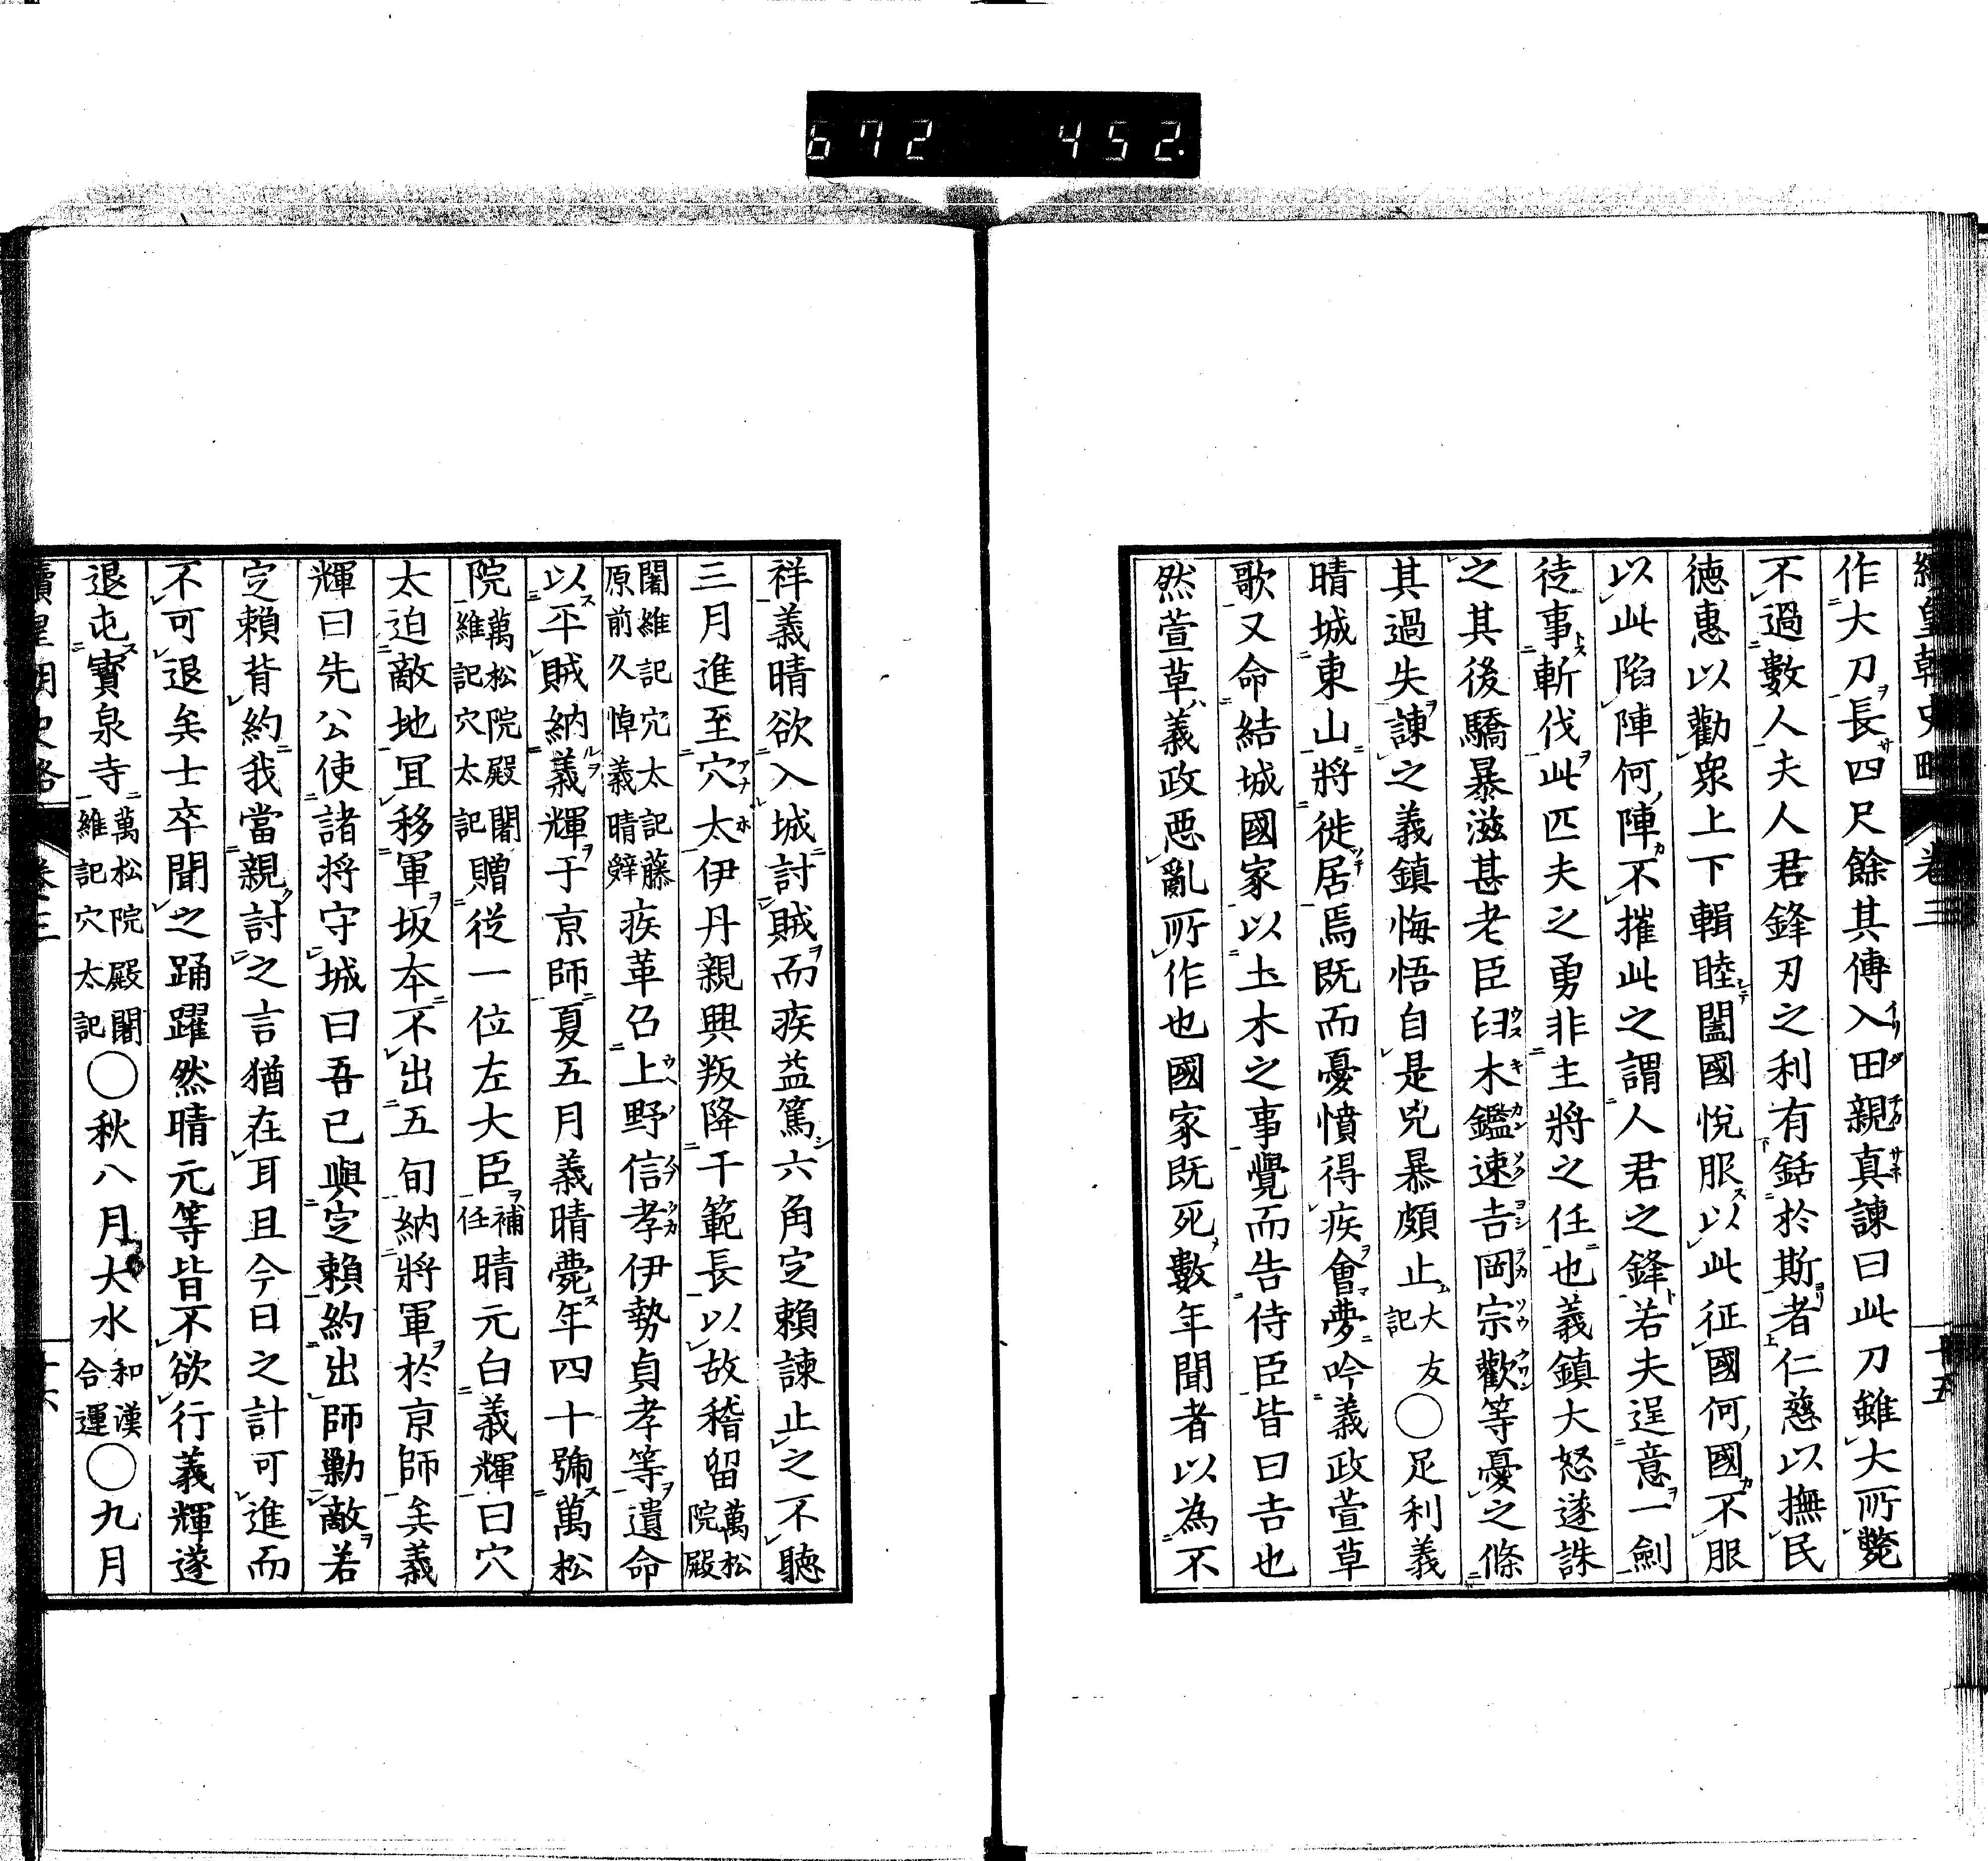 672 452.
續皇朝史略 卷三 十五
作大刀長四尺餘其傅入田親真諫曰此刀雖大所斃
不過數人夫人君鋒刃之利有銛於斯者仁慈以撫民
德惠以勸衆上下輯睦闔國悅服以此征國何國不服
以此陷陣何陣不摧此之謂人君之鋒若夫逞意一劍
徒事斬伐此匹夫之勇非主將之任也義鎮大怒遂誅
之其後驕暴滋甚老臣臼木鑑速吉岡宗歡等憂之條
其過失諫之義鎮悔悟自是兇暴頗止大友記〇足利義
晴城東山將徙居焉既而憂憤得疾會夢吟義政萱草
歌又命結城國家以土木之事覺而告侍臣皆曰吉也
然萱草義政惡亂所作也國家既死數年聞者以為不
祥義晴欲入城討賊而疾益篤六角定賴諫止之不聽
三月進至穴太伊丹親興叛降于範長以故稽留萬松院殿
闇維記穴太記藤原前久悼義晴辭疾革召上野信孝伊勢貞孝等遺命
以平賊納義輝于京師夏五月義晴薨年四十號萬松
院萬松院殿闇維記穴太記贈從一位左大臣補任晴元白義輝曰穴
太迫敵地宜移軍坂本不出五旬納將軍於京師矣義
輝曰先公使諸將守城曰吾已與定賴約出師勦敵若
定賴背約我當親討之言猶在耳且今日之計可進而
不可退矣士卒聞之踊躍然晴元等皆不欲行義輝遂
退屯寶泉寺萬松院殿闇維記穴太記〇秋八月大水和漢合運〇九月
續皇朝史略 卷三 十六